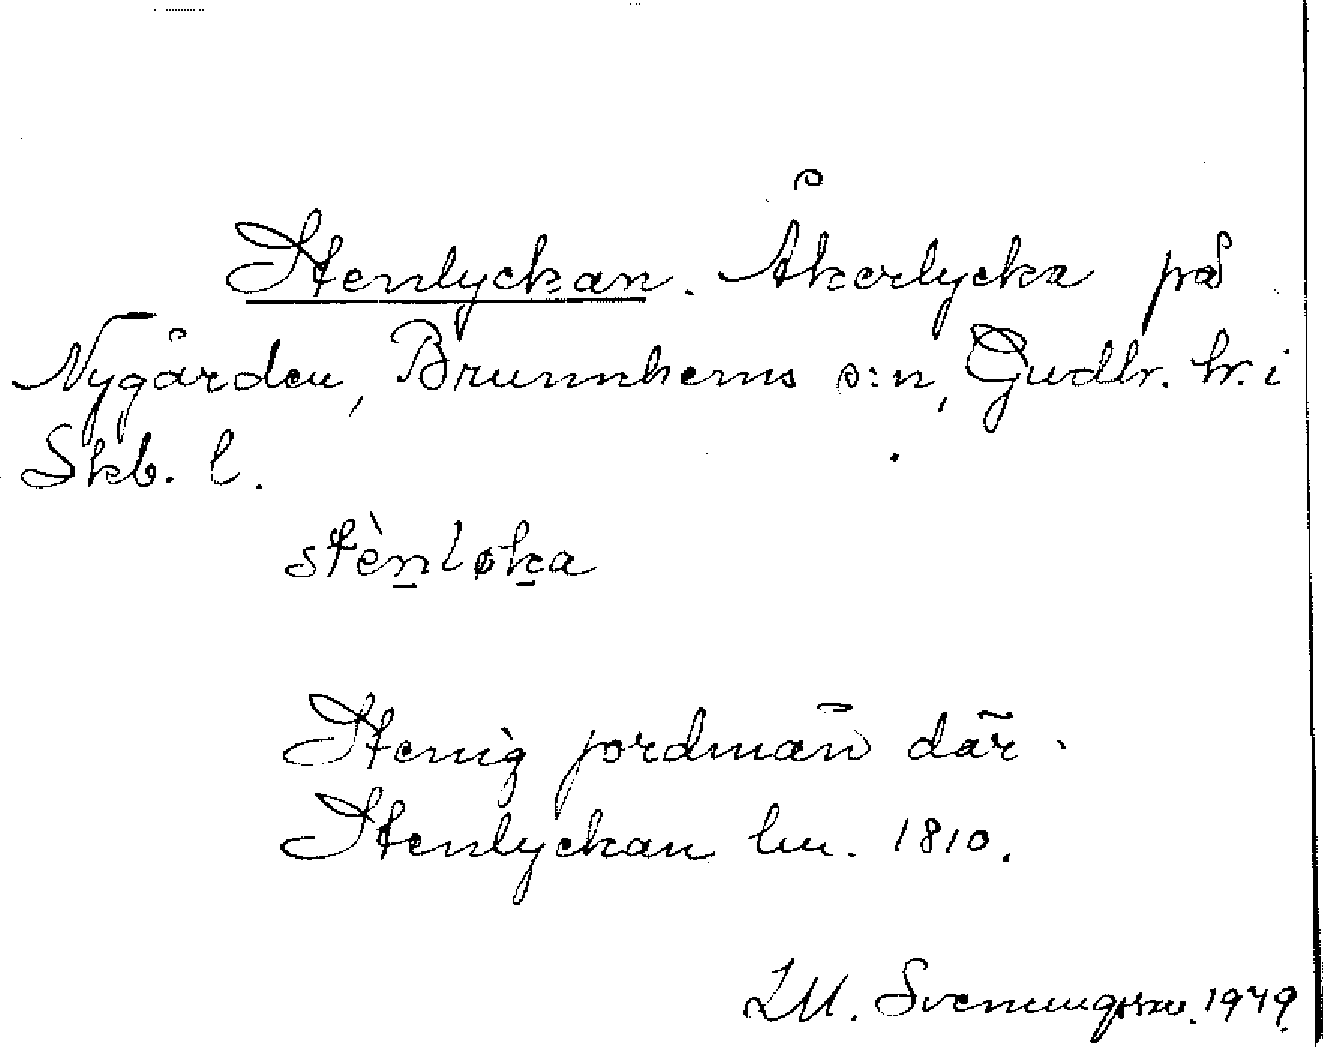 Stenlyckan. Åkerlycka på
Nygården, Brunnhems s:n, Gudh. hr. i
Skb. l.
stènløka
Stenig jordmån där.
Stenlyckan lm. 1810.
L.M. Svenungsson. 1949